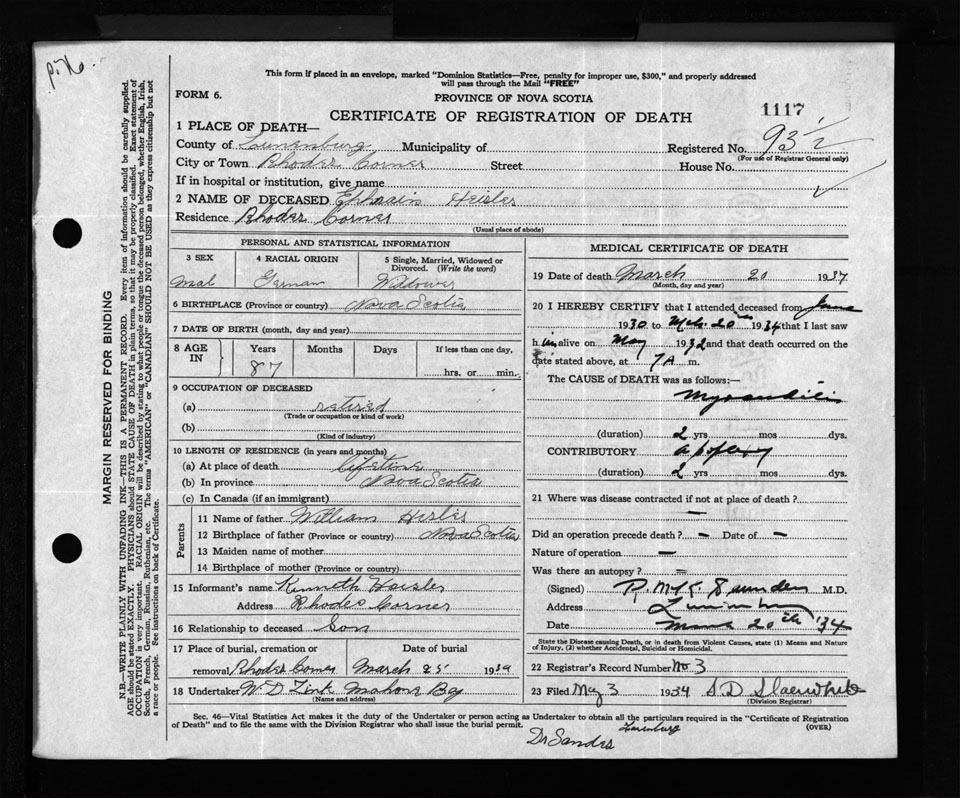 p.76.
This form if placed in an envelope, marked "Dominion Statistics—Free, penalty for improper use, $300," and properly addressed
will pass through the Mail "FREE"
FORM 6.
PROVINCE OF NOVA SCOTIA
CERTIFICATE OF REGISTRATION OF DEATH
1117
1 PLACE OF DEATH—
County of Lunenburg Municipality of Registered No. 93½
(For use of Registrar General only)
City or Town Rhodes Corner Street House No.
If in hospital or institution, give name
2 NAME OF DECEASED Ephraim Heisler
Residence Rhodes Corner
(Usual place of abode)
PERSONAL AND STATISTICAL INFORMATION
3 SEX
Mal
4 RACIAL ORIGIN
German
5 Single, Married, Widowed or
Divorced. (Write the word)
Widower
6 BIRTHPLACE (Province or country) Nova Scotia
7 DATE OF BIRTH (month, day and year)
8 AGE IN
Years Months Days If less than one day,
87 hrs. or min.
9 OCCUPATION OF DECEASED
(a) retired
(Trade or occupation or kind of work)
(b)
(Kind of industry)
10 LENGTH OF RESIDENCE (in years and months)
(a) At place of death lifetime
(b) In province Nova Scotia
(c) In Canada (if an immigrant)
Parents
11 Name of father William Heisler
12 Birthplace of father (Province or country) Nova Scotia
13 Maiden name of mother
14 Birthplace of mother (Province or country)
15 Informant's name Kenneth Heisler
Address Rhodes Corner
16 Relationship to deceased Son
17 Place of burial, cremation or
removal Rhodes Corner
Date of burial
March 25 193
18 Undertaker W. D. Zink Mahone Bay
(Name and address)
MEDICAL CERTIFICATE OF DEATH
19 Date of death March 20 19
(Month, day and year)
20 I HEREBY CERTIFY that I attended deceased from June
1930 to Mch. 20th 1934 that I last saw
h im alive on May 1932 and that death occurred on the
date stated above, at 7 A m.
The CAUSE of DEATH was as follows:—
(duration) 2 yrs mos dys.
CONTRIBUTORY
(duration) 2 yrs mos dys.
21 Where was disease contracted if not at place of death?
—
Did an operation precede death? — Date of —
Nature of operation —
Was there an autopsy? =
(Signed) M.D.
Address Lunenburg
Date March 20th '34
State the Disease causing Death, or in death from Violent Causes, state (1) Means and Nature
of Injury, (2) whether Accidental, Suicidal or Homicidal.
22 Registrar's Record Number No 3
23 Filed May 3 1934 S. D. Slaenwhite
(Division Registrar)
Sec. 46—Vital Statistics Act makes it the duty of the Undertaker or person acting as Undertaker to obtain all the particulars required in the "Certificate of Registration
of Death" and to file the same with the Division Registrar who shall issue the burial permit.
(OVER)
Dr Sanders Lunenburg
MARGIN RESERVED FOR BINDING
N.B.—WRITE PLAINLY WITH UNFADING INK—THIS IS A PERMANENT RECORD. Every item of information should be carefully supplied.
AGE should be stated EXACTLY. PHYSICIANS should STATE CAUSE OF DEATH in plain terms, so that it may be properly classified. Exact statement of
OCCUPATION is very important. RACIAL ORIGIN will be described by stating to what people or tongue the deceased person belonged, whether English, Irish,
Scotch, French, German, Russian, Ruthenian, etc. The terms "AMERICAN" or "CANADIAN" SHOULD NOT BE USED as they express citizenship but not
a race or people. See instructions on back of Certificate.